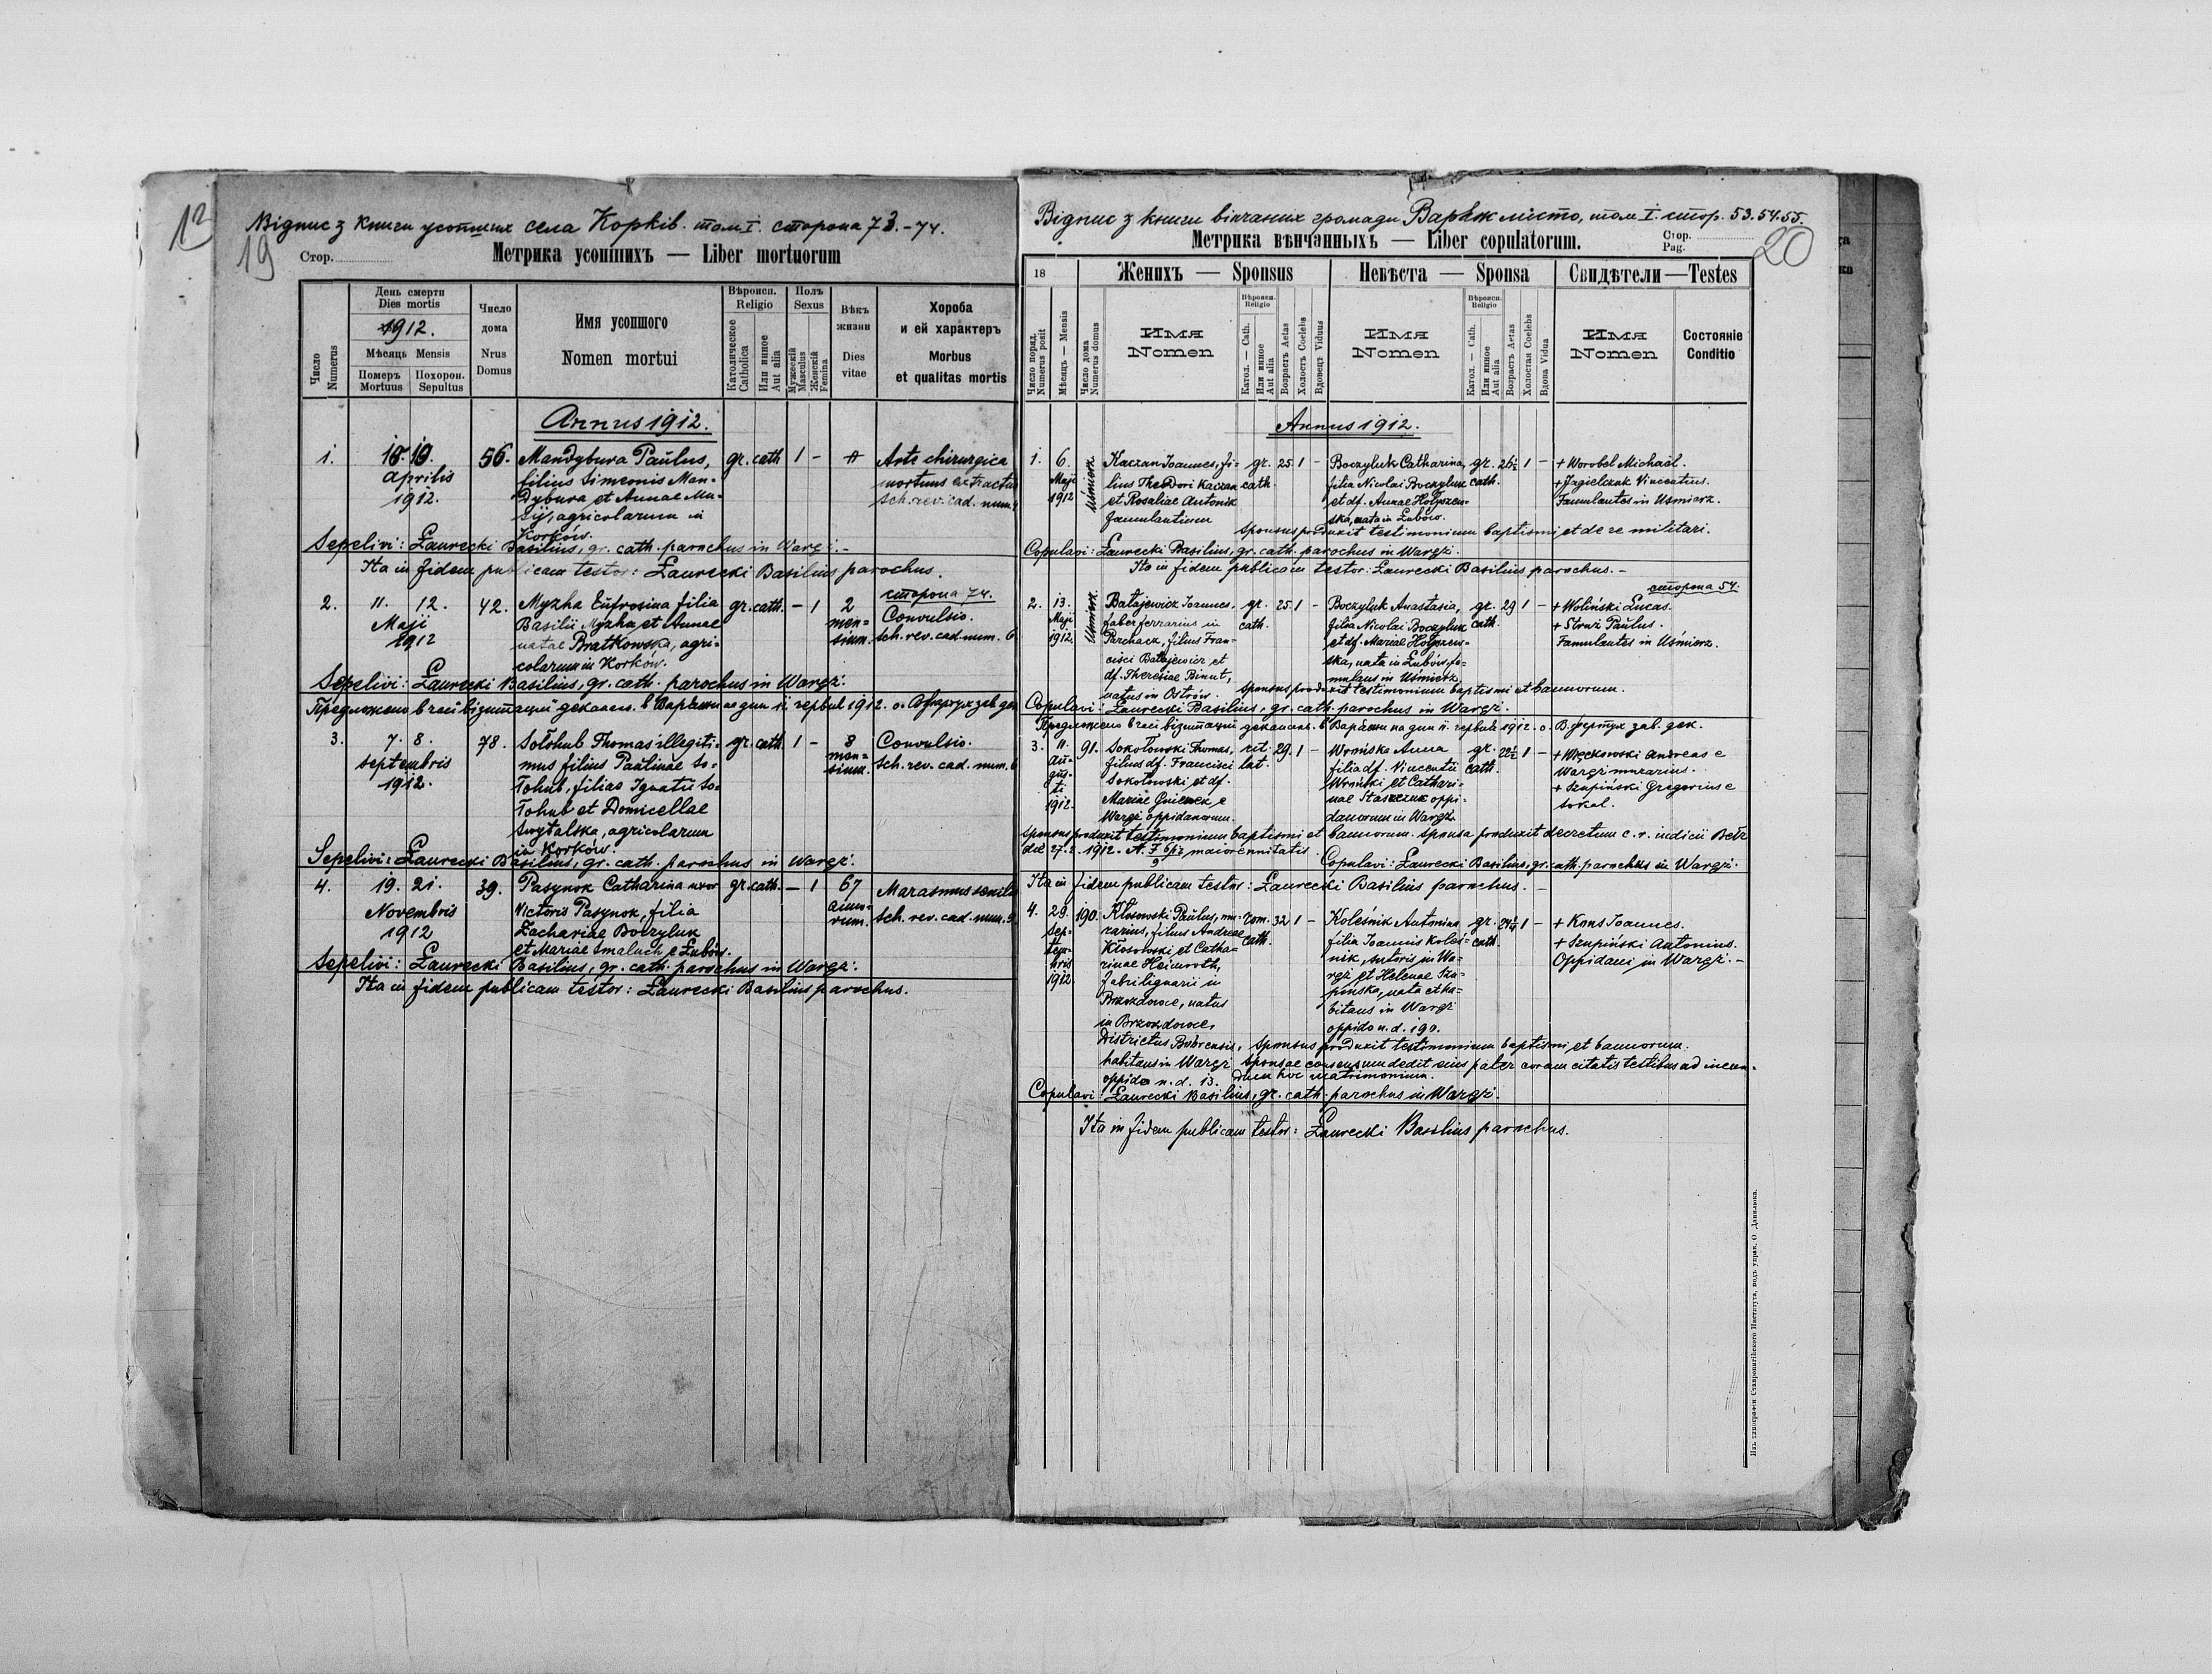 12
19
Відпис з книги усопших села Корків. том I. сторона 73.-74.
Стор.
Метрика усопшихъ — Liber mortuorum
Число
Numerus
День смерти
Dies mortis
1912.
Мѣсяць Mensis
Померъ
Mortuus
Похорон.
Sepultus
Число
дома
Nrus
Domus
Имя усопшого
Nomen mortui
Вѣроисп.
Religio
Католическое
Catholica
Или инное
Aut alia
Полъ
Sexus
Мужескій
Masculus
Женскій
Femina
Вѣкъ
жизни
Dies
vitae
Хороба
и ей характеръ
Morbus
et qualitas mortis
Annus 1912.
1. 10. 10. 56. Mandybura Paulus, gr. cath 1 - Arte chirurgica
Aprilis filius Simeonis Man- mortuus extractus
1912. dybura et Annae Mu- sch. rev. cad. num.
sij, agricolarum in
Korków.
Sepelivi: Laurecki Basilius, gr. cath. parochus in Waręż.-
Ita in fidem publicam testor: Laurecki Basilius parochus.
сторона 74.
2. 11. 12. 42. Myzha Eufrosina filia gr. cath. - 1 2 Convulsio.
Maji Basilii Myzha et Annae men= sch. rev. cad. num. 6
1912 natae Bratkowska, agri- sium.
colarum in Korków.
Sepelivi: Laurecki Basilius, gr. cath. parochus in Waręż.
Предложено в часі візитації деканал. в Варяжи на дни 11 червня 1912. о.
3. 7. 8. 78. Sołohub Thomas illegiti- gr. cath. 1 - 8 Convulsio.
Septembris mus filius Paulinae So= men= sch. rev. cad. num. 6
1912. łohub, filiae Ignatii So= sium.
łohub et Domicellae
Swytalska, agricolarum
in Korków.
Sepelivi: Laurecki Basilius, gr. cath. parochus in Waręż.
4. 19. 21. 39. Pasynok Catharina uxor gr. cath. - 1 67 Marasmus senilis
Novembris Victoris Pasynok, filia anno- sch. rev. cad. num. 9
1912 Zachariae Boczyluk rum.
et Mariae Smaluch e Łubów.
Sepelivi: Laurecki Basilius, gr. cath. parochus in Waręż.
Ita in fidem publicam testor: Laurecki Basilius parochus.
Відпис з книги вінчаних громади Варяж місто, том I. стор. 53.54.55.
Метрика вѣнчанныхъ — Liber copulatorum.
Стор.
Pag.
20
18
Женихъ — Sponsus
Невѣста — Sponsa
Свидѣтели — Testes
Число поряд.
Numerus posit
Мѣсяць — Mensis
Число дома
Numerus domus
Имя
Nomen
Вѣроисп.
Religio
Катол. — Cath.
Или инное
Aut alia
Возрастъ Aetas
Холостъ Coelebs
Вдовецъ Viduus
Имя
Nomen
Вѣроисп.
Religio
Катол. — Cath.
Или инное
Aut alia
Возрастъ Aetas
Холостая Coelebs
Вдова Vidua
Имя
Nomen
Состояніе
Conditio
Annus 1912.
1. 6. Uśmierz Kaczan Joannes, fi- gr. 25 1 - Boczyluk Catharina, gr. 26½ 1 - + Worobel Michaël.
Maji lius Theodori Kaczan cath. filia Nicolai Boczyluk cath. + Jagielczuk Vincentius.
1912 et Rosaliae Antonik et df. Annae Hołyszew- Famulantes in Uśmierz.
famulantium ska, nata in Łubów.
Sponsus produxit testimonium baptismi et de re militari.
Copulavi: Laurecki Basilius, gr. cath. parochus in Waręż.
Ita in fidem publicam testor: Laurecki Basilius parochus. -
сторона 54.
2. 13. Uśmierz Bałajewicz Joannes. gr. 25 1 - Boczyluk Anastasia, gr. 29 1 - + Woliński Lucas.
Maji faber ferrarius in cath. filia Nicolai Boczyluk cath. + Struz Paulus.
1912. Parchacz, filius Fran- et df. Mariae Hołyszew- Famulantes in Uśmierz.
cisci Bałajewicz et ska, nata in Łubów, fa=
df. Theresiae Binut, mulans in Uśmierz.
natus in Ostrów. Sponsus produxit testimonium baptismi et bannorum.
Copulavi: Laurecki Basilius, gr. cath. parochus in Waręż.
Предложено в часі візитації деканал. в Варяжи на дни 11. червня 1912. о. зав. дек.
3. 11. 91. Sokołowski Thomas, rit. 29. 1 - Wrońska Anna gr. 22½ 1 - + Więckowski Andreas e
Au- filius df. Francisci lat. filia df. Vincentii cath. Waręż murarius.
gus- Sokołowski et df. Wroński et Cathari- + Szupiński Gregorius e
ti Mariae Gnienek e nae Staszczuk oppi- Sokal.
1912. Waręż oppidanorum. danorum in Waręż.
Sponsus produxit testimonium baptismi et bannorum. Sponsa produxit decretum c. r. iudicii Bełz
dd 27.2. 1912. maiorennitatis. Copulavi: Laurecki Basilius, gr. cath. parochus in Waręż.
Ita in fidem publicam testor: Laurecki Basilius parochus. -
4. 29. 190. Kłosowski Paulus, mu- rom. 32 1 - Koleśnik Antonina gr. 24¼ 1 - + Kons Joannes.
Sep- rarius, filius Andreae cath. filia Joannis Koleś- cath. + Szupiński Antonius.
tem- Kłosowski et Catha- nik, sutoris in Wa- Oppidani in Waręż. -
bris rinae Heinroth, ręż et Helenae Szu-
1912. fabri lignarii in pińska, nata et ha=
Brzozdowce, natus bitans in Waręż
in Brzozdowce, oppido n. d. 190.
Districtus Bobrensis, Sponsus produxit testimonium baptismi et bannorum.
habitans in Waręż Sponsae consensum dedit eius pater coram citatis testibus ad ineun-
oppido n. d. 13. dum hoc matrimonium.
Copulavi: Laurecki Basilius, gr. cath. parochus in Waręż.
Ita in fidem publicam testor: Laurecki Basilius parochus.
Изъ типографіи Ставропигійского Института, подъ управ. О. Данилюка.